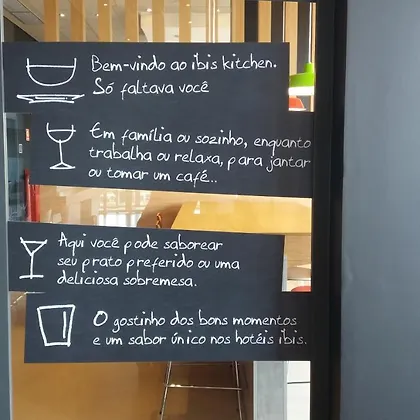 Bem-vindo ao ibis kitchen.
Só faltava você
Em família ou sozinho, enquanto
trabalha ou relaxa, para jantar
ou tomar um café..
Aqui você pode saborear
seu prato preferido ou uma
deliciosa sobremesa.
O gostinho dos bons momentos
e um sabor único nos hotéis ibis.